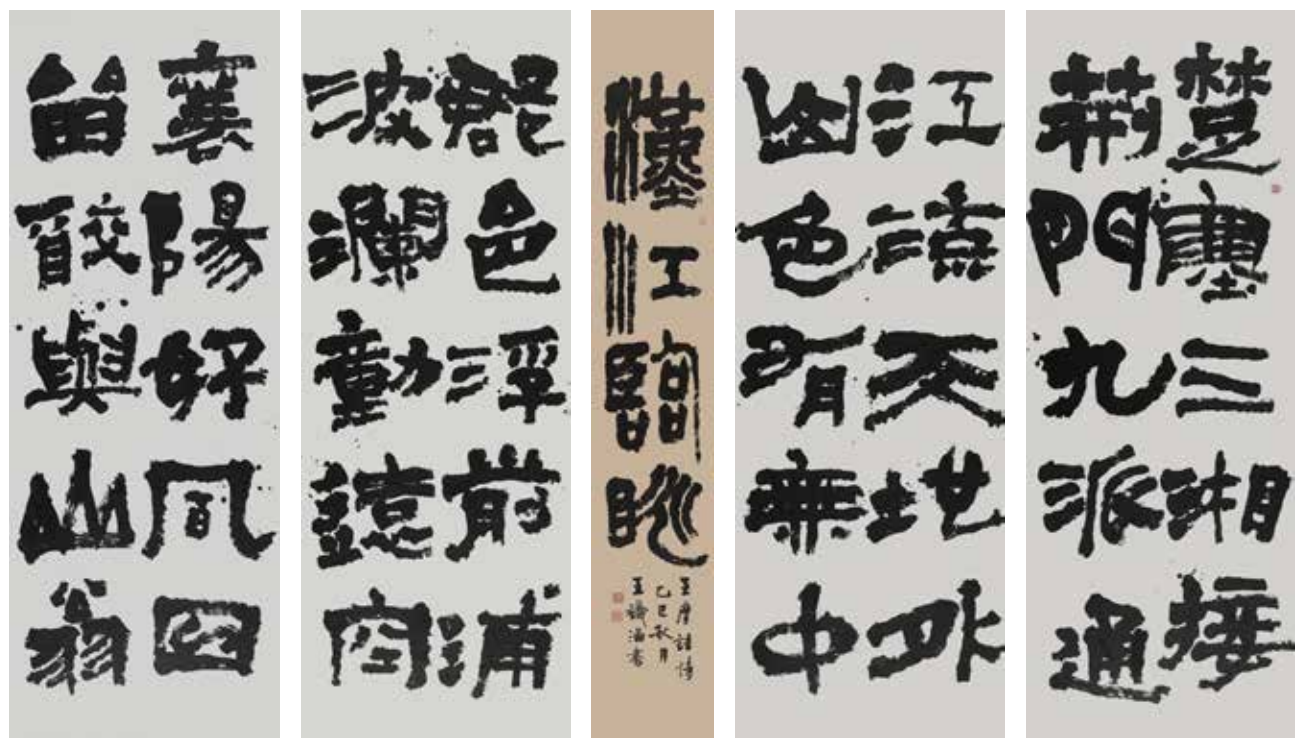 楚塞三湘接
荊門九派通
江流天地外
山色有無中
漢江臨眺
王摩詰詩
乙巳秋月
郡邑浮前浦
波瀾動遠空
襄陽好風日
留醉與山翁